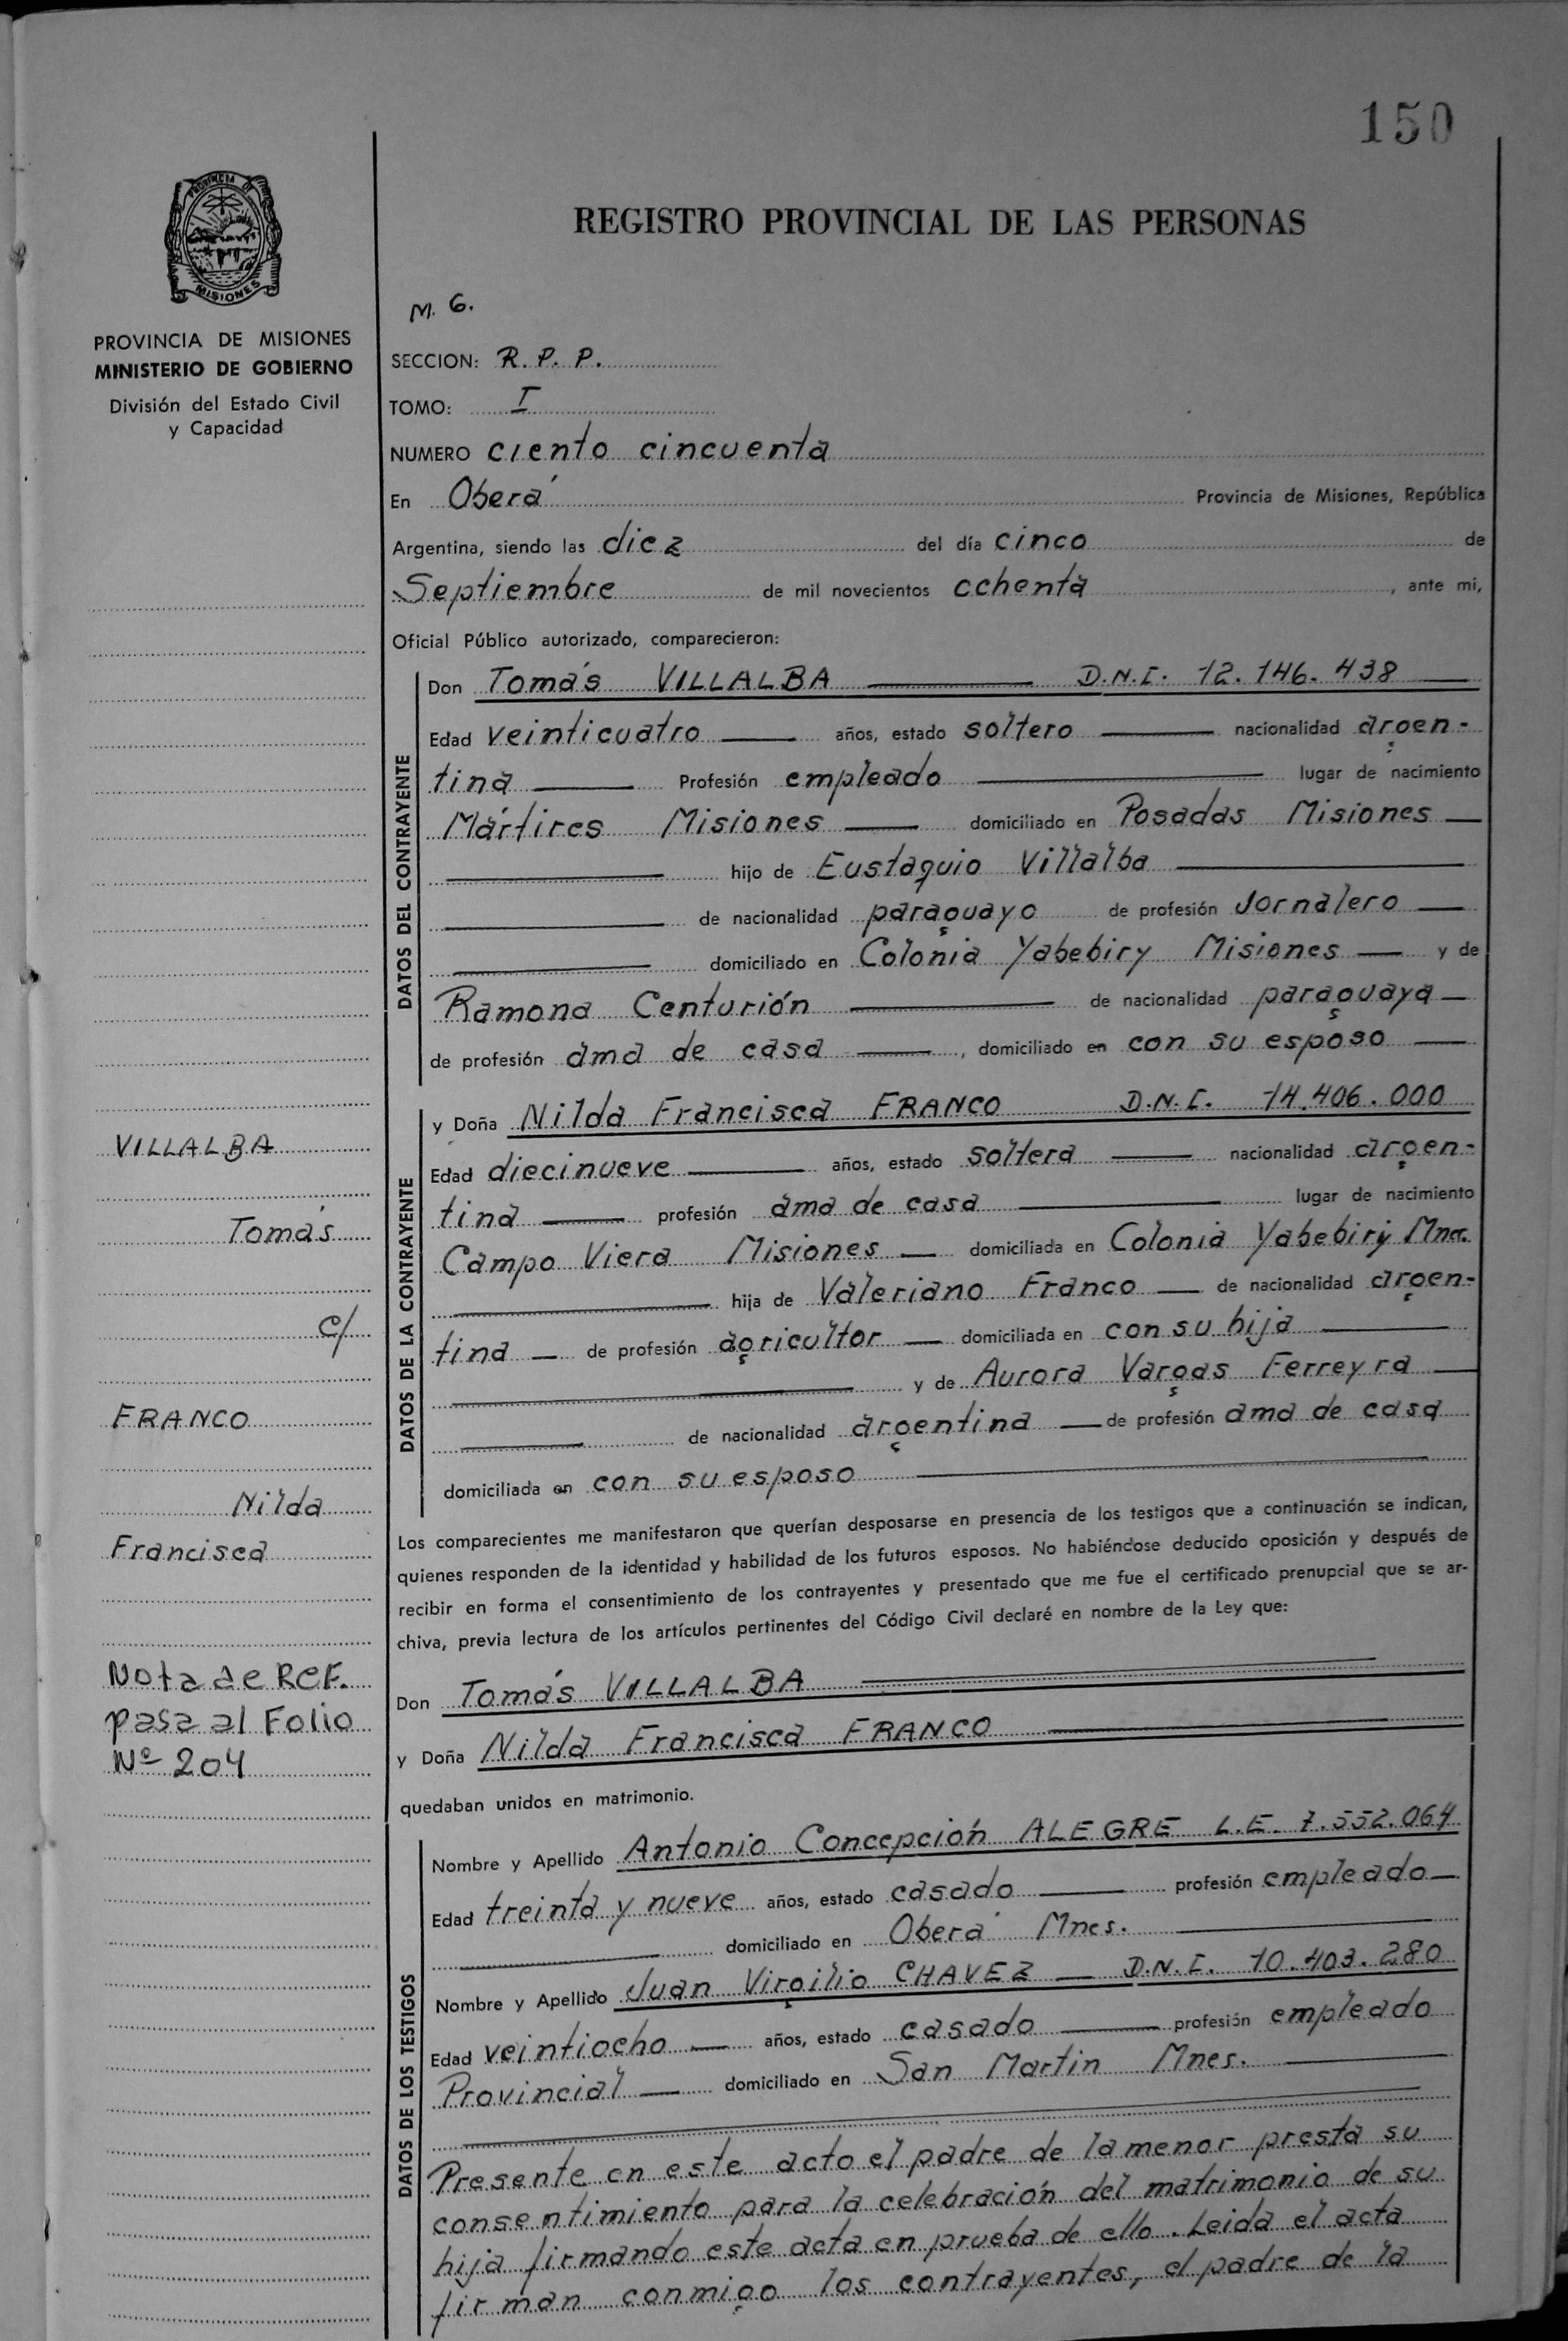 150
REGISTRO PROVINCIAL DE LAS PERSONAS
PROVINCIA DE
MISIONES
PROVINCIA DE MISIONES
MINISTERIO DE GOBIERNO
División del Estado Civil
y Capacidad
M. G.
SECCION: R. P. P.
TOMO: I
NUMERO ciento cincuenta
En Oberá Provincia de Misiones, República
Argentina, siendo las diez del día cinco de
Septiembre de mil novecientos ochenta, ante mi,
Oficial Público autorizado, comparecieron:
DATOS DEL CONTRAYENTE
Don Tomás VILLALBA D.N.I. 12.146.438
Edad veinticuatro años, estado soltero nacionalidad argen-
tina Profesión empleado lugar de nacimiento
Mártires Misiones domiciliado en Posadas Misiones
hijo de Eustaquio Villalba
de nacionalidad paraguayo de profesión Jornalero
domiciliado en Colonia Yabebiry Misiones y de
Ramona Centurión de nacionalidad paraguaya
de profesión ama de casa, domiciliado en con su esposo
DATOS DE LA CONTRAYENTE
y Doña Nilda Francisca FRANCO D.N.I. 14.406.000
Edad diecinueve años, estado soltera nacionalidad argen-
tina profesión ama de casa lugar de nacimiento
Campo Viera Misiones domiciliada en Colonia Yabebiry Mnes.
hija de Valeriano Franco de nacionalidad argen-
tina de profesión agricultor domiciliada en con su hija
y de Aurora Vargas Ferreyra
de nacionalidad argentina de profesión ama de casa
domiciliada en con su esposo
Los comparecientes me manifestaron que querían desposarse en presencia de los testigos que a continuación se indican,
quienes responden de la identidad y habilidad de los futuros esposos. No habiéndose deducido oposición y después de
recibir en forma el consentimiento de los contrayentes y presentado que me fue el certificado prenupcial que se ar-
chiva, previa lectura de los artículos pertinentes del Código Civil declaré en nombre de la Ley que:
Don Tomás VILLALBA
y Doña Nilda Francisca FRANCO
quedaban unidos en matrimonio.
DATOS DE LOS TESTIGOS
Nombre y Apellido Antonio Concepción ALEGRE L.E. 7.552.064
Edad treinta y nueve años, estado casado profesión empleado
domiciliado en Oberá Mnes.
Nombre y Apellido Juan Virgilio CHAVEZ D.N.I. 10.403.280
Edad veintiocho años, estado casado profesión empleado
Provincial domiciliado en San Martin Mnes.
Presente en este acto el padre de la menor presta su
consentimiento para la celebración del matrimonio de su
hija firmando este acta en prueba de ello. Leida el acta
firman conmigo los contrayentes, el padre de la
VILLALBA
Tomás
c/
FRANCO
Nilda
Francisca
Nota de Ref.
pasa al Folio
Nº 204